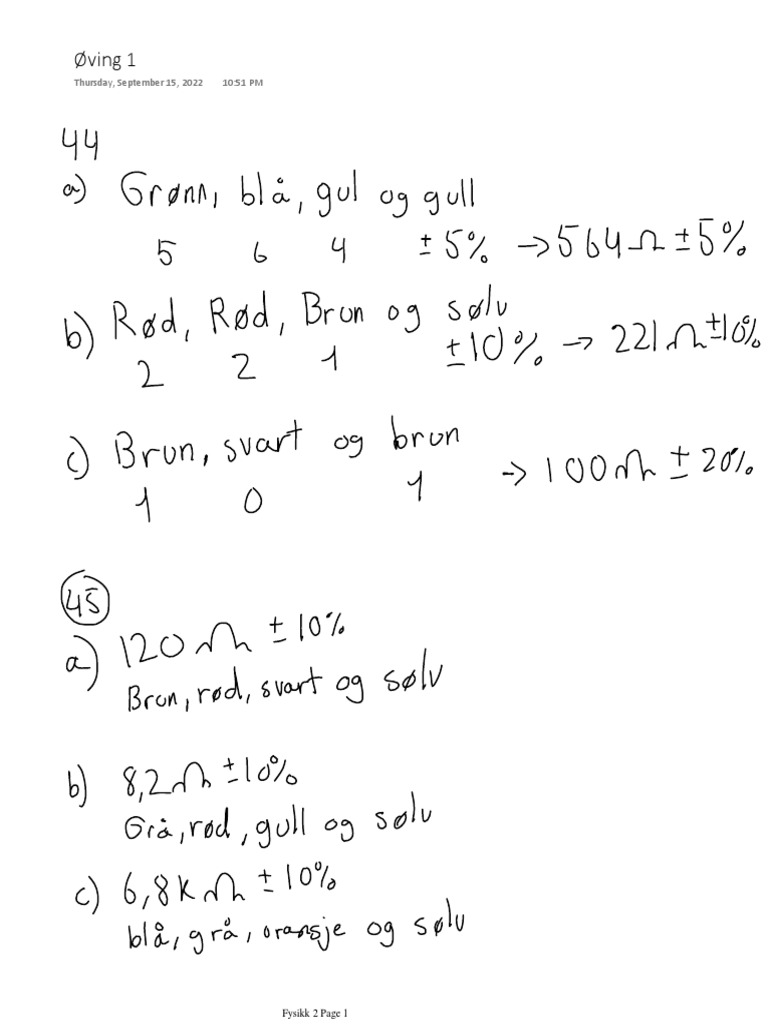 Øving 1
Thursday, September 15, 2022 10:51 PM
44
a) Grønn, blå, gul og gull
5 6 4 ±5% → 564Ω ±5%
b) Rød, Rød, Brun og sølv
2 2 1 ±10% → 221Ω ±10%
c) Brun, svart og brun
1 0 1 → 100Ω ± 20%
45
a) 120Ω ±10%
Brun, rød, svart og sølv
b) 8,2Ω ±10%
Grå, rød, gull og sølv
c) 6,8kΩ ±10%
blå, grå, oransje og sølv
Fysikk 2 Page 1